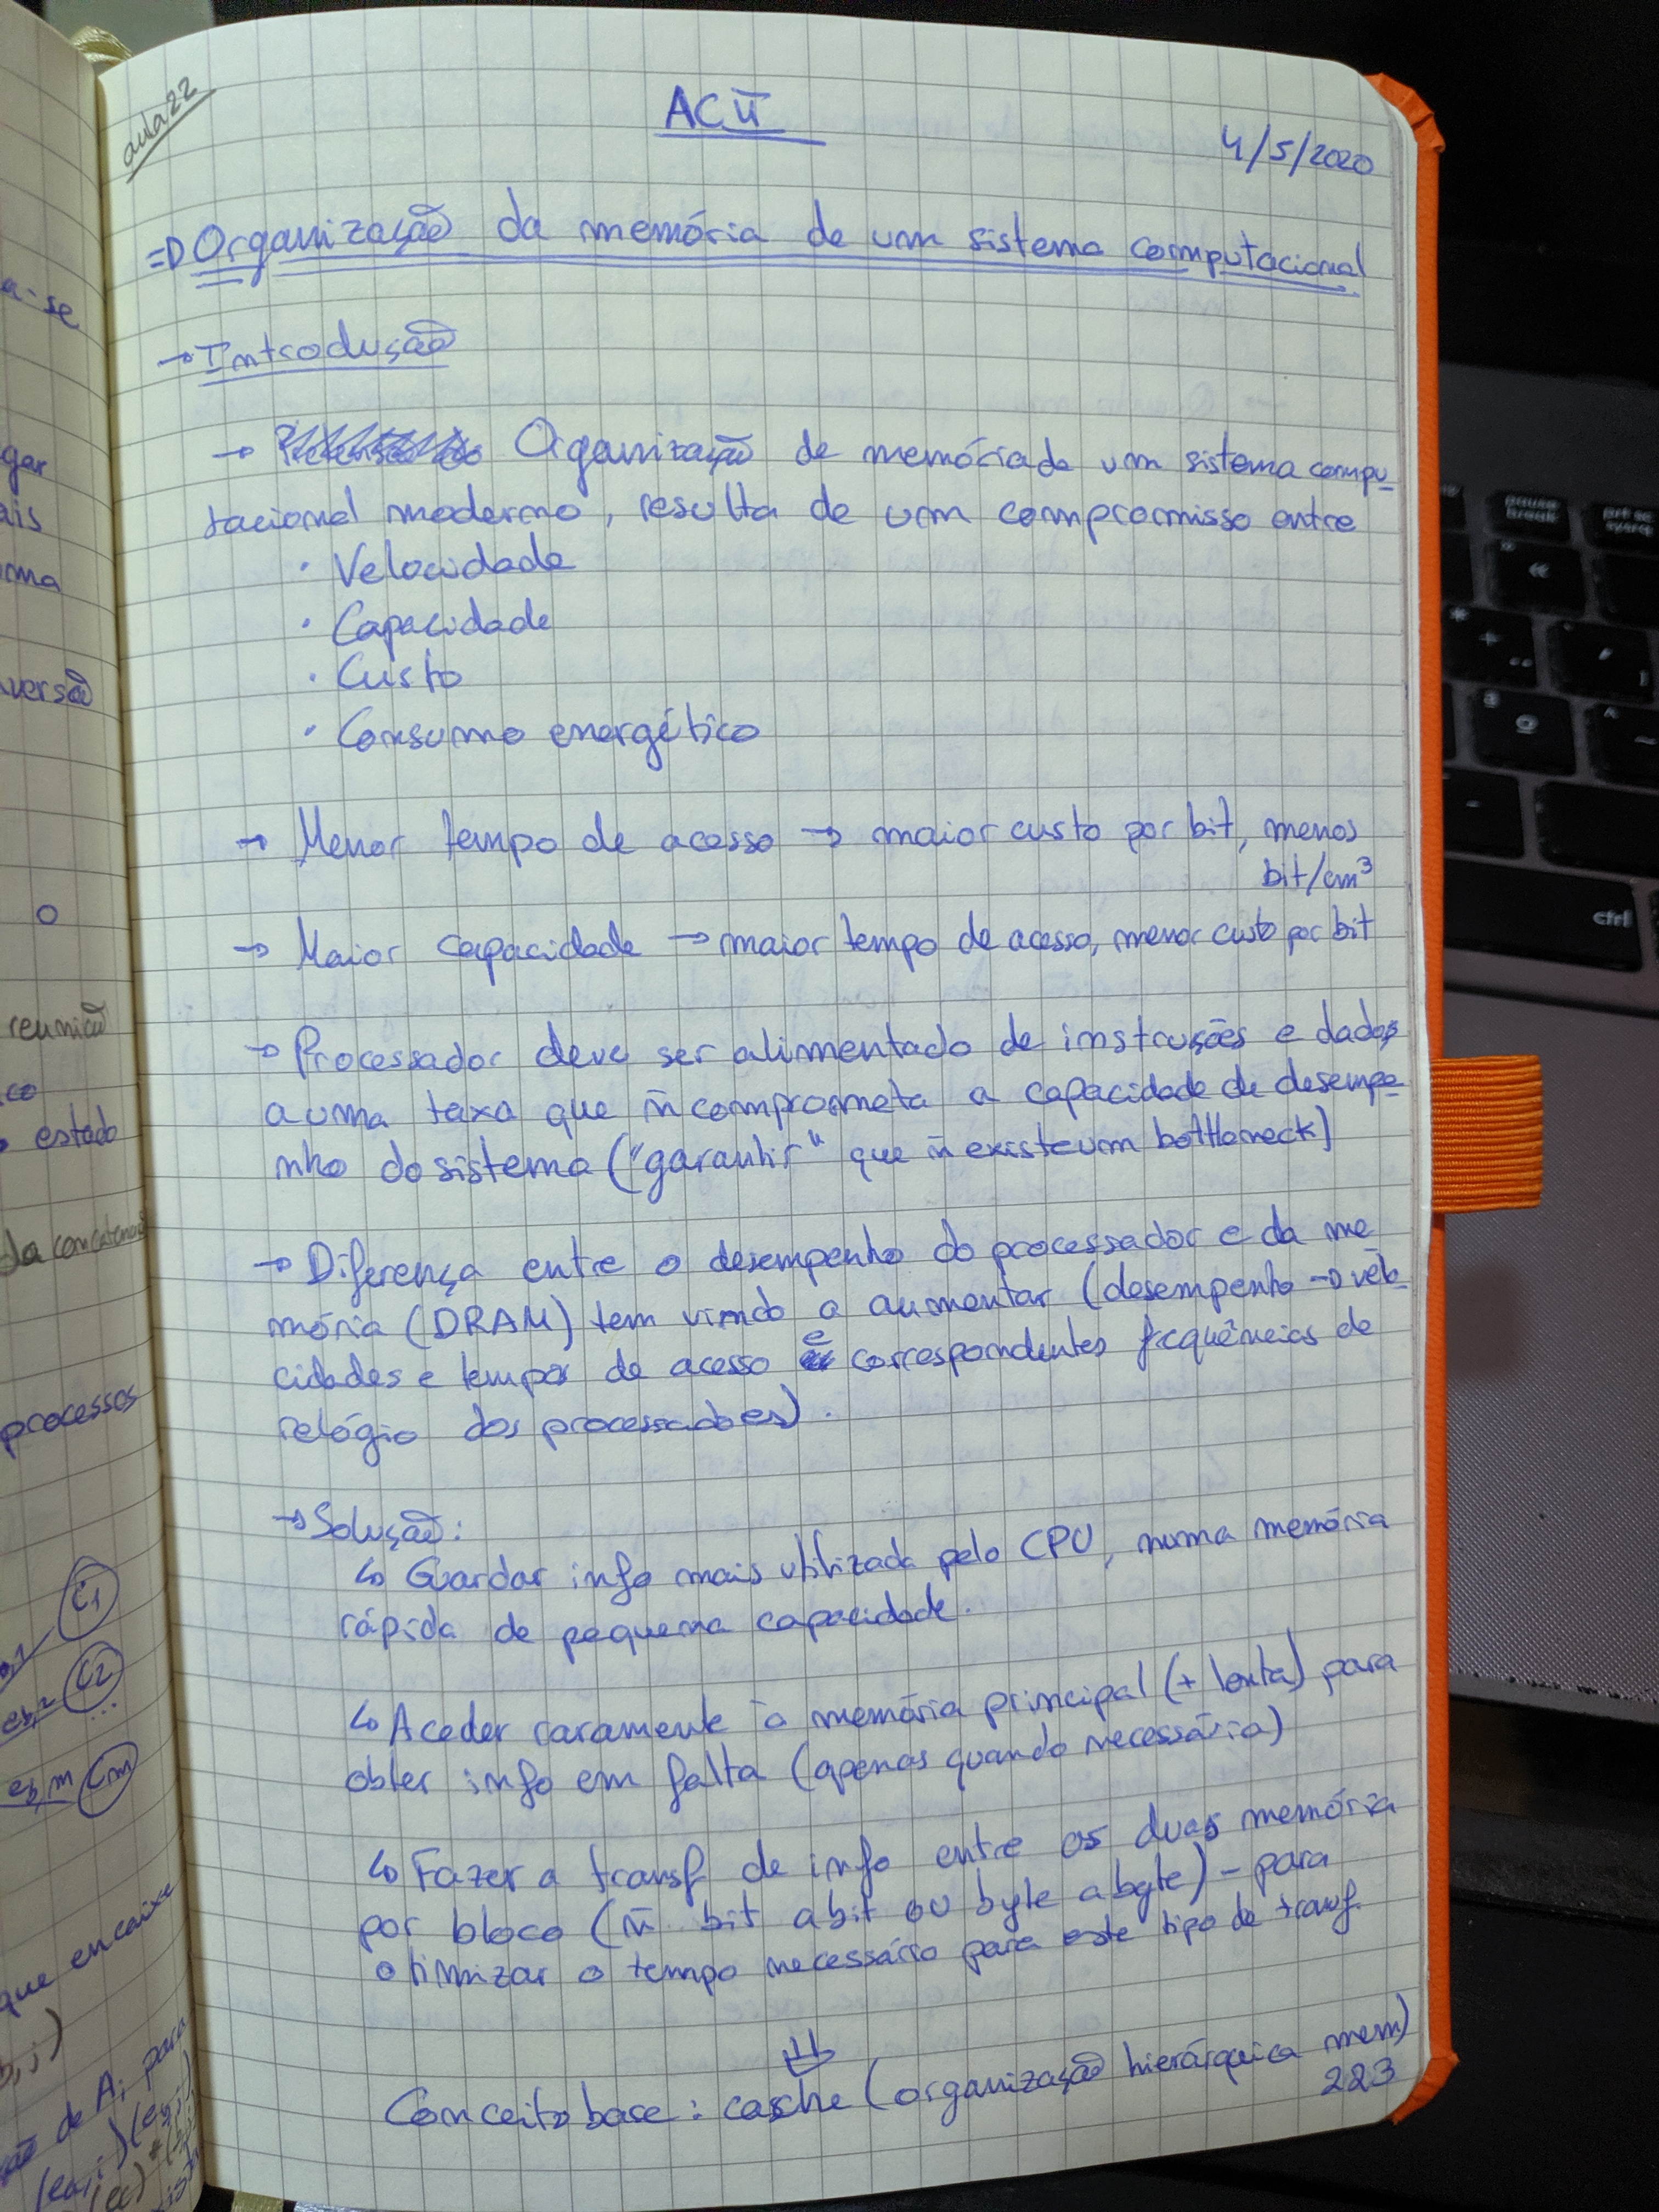 aula 22
ACII
4/5/2020
=> Organização da memória de um sistema computacional
→ Introdução
→ Oganização de memória de um sistema compu-
tacional moderno, resulta de um compromisso entre
· Velocidade
· Capacidade
· Custo
· Consumo energético
→ Menor tempo de acesso → maior custo por bit, menos
bit/cm³
→ Maior capacidade → maior tempo de acesso, menor custo por bit
→ Processador deve ser alimentado de instruções e dados
a uma taxa que ñ comprometa a capacidade de desempe-
nho do sistema ("garantir" que ñ existe um bottleneck)
→ Diferença entre o desempenho do processador e da me-
mória (DRAM) tem vindo a aumentar (desempenho → velo-
cidades e tempos de acesso e correspondentes frequências de
relógio dos processadores).
→ Solução:
↳ Guardar info mais utilizada pelo CPU, numa memória
rápida de pequena capacidade.
↳ Aceder raramente à memória principal (+ lenta) para
obter info em falta (apenas quando necessária)
↳ Fazer a transf de info entre as duas memória
por bloco (ñ bit a bit ou byte a byte) - para
otimizar o tempo necessário para este tipo de transf.
⇓
Conceito base: casche (organização hierárquica mem)
223
a-se
gar
ais
ma
versão
o
reunião
co
estado
da concatenação
processos
C1
C2
...
eb,m Cm
que encaixe
b,j)
de A, para